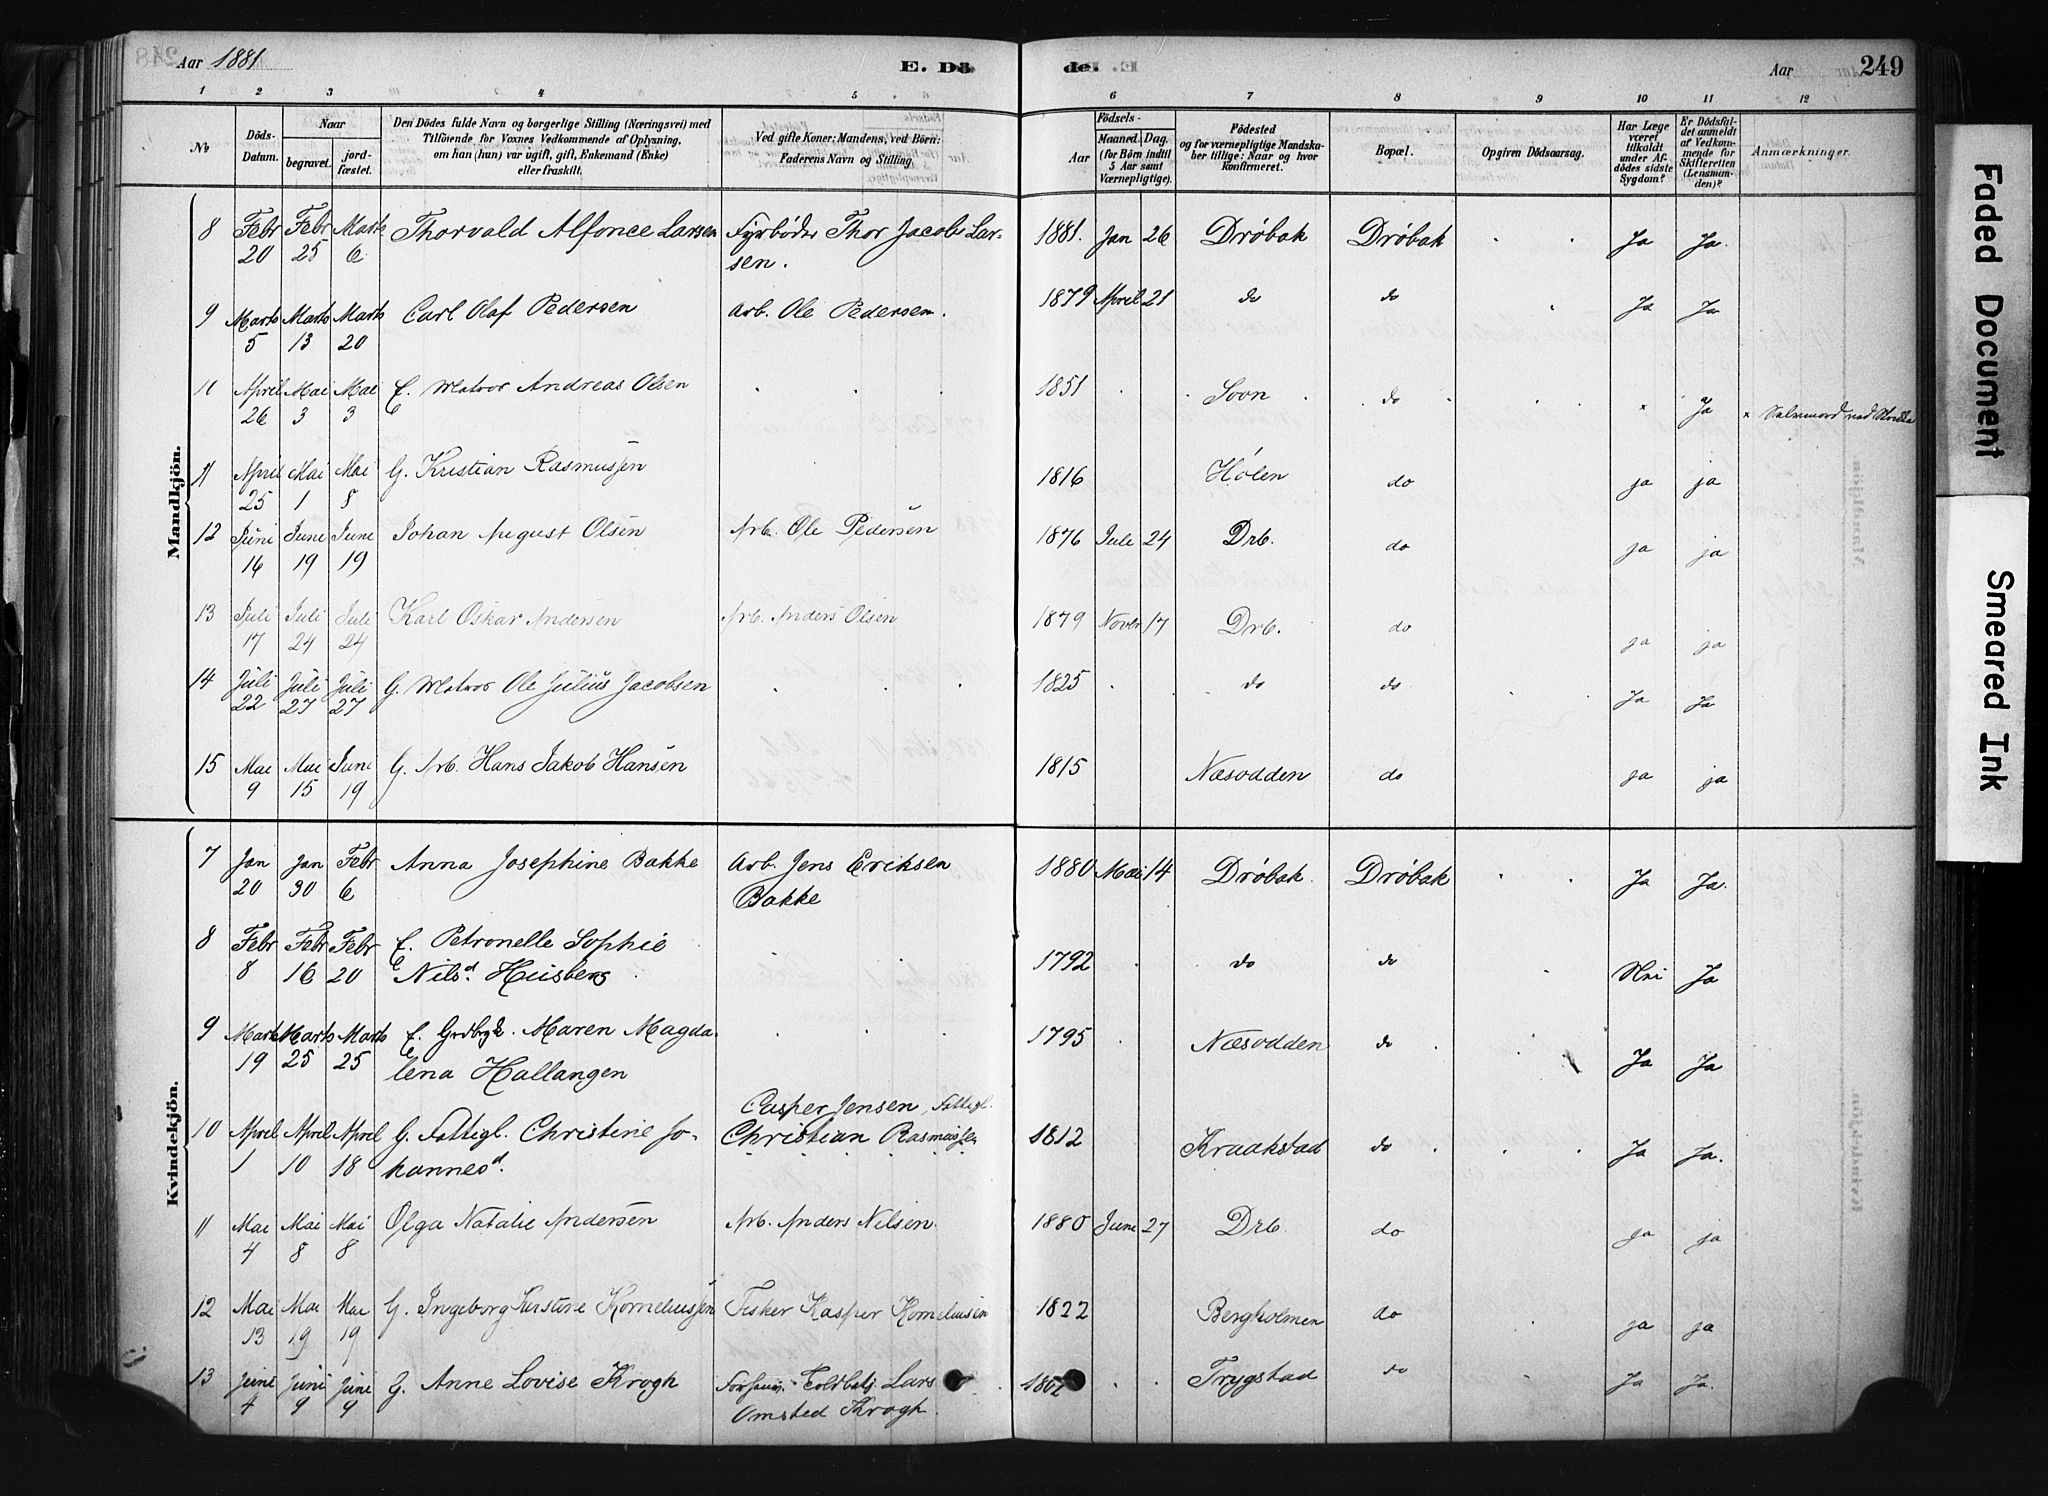 248
Aar 1881.
E. Dö
de.
Aar
249
1 2 3 4 5 6 7 8 9 10 11 12
No
Döds-
Datum.
Naar
begravet.
jord-
fæstet.
Den Dödes fulde Navn og borgerlige Stilling (Næringsvei) med
Tilföiende for Voxnes Vedkommende af Oplysning,
om han (hun) var ugift, gift, Enkemand (Enke)
eller fraskilt.
Ved gifte Koner: Mandens, ved Börn:
Faderens Navn og Stilling.
Aar
Födsels-
Maaned. Dag.
(for Börn indtil
5 Aar samt
Værnepligtige).
Födested
og for værnepligtige Mandska-
ber tillige: Naar og hvor
Konfirmeret.
Bopæl.
Opgiven Dödsaarsag.
Har Læge
været
tilkaldt
under Af-
dödes sidste
Sygdom?
Er Dödsfal-
det anmeldt
af Vedkom-
mende for
Skifteretten
(Lensman-
den)?
Anmærkninger.
Mandkjön.
8 Febr Febr Marts Thorvald Alfonce Larsen Fyrböder Thor Jacob Lar- 1881. Jan 26 Dröbak Dröbak Ja Ja.
20 25 6 sen.
9 Marts Marts Marts Carl Olaf Pedersen Arb. Ole Pedersen. 1879 April 21 do do Ja Ja
5 13 20
April Mai Mai E. Matros Andreas Olsen 1851 Soon do x Ja x Selvmord ved
26 3 3
11 April Mai Mai G. Kristian Rasmussen 1816 Hölen do ja ja
25 1 8
12 Juni Juni Juni Johan August Olsen Arb. Ole Pedersen 1876 Juli 24 Drb. do ja ja
16 19 19
13 Juli Juli Juli Karl Oskar Andersen Arb. Anders Olsen 1879 Novbr 17 Drb. do ja ja
17 24 24
14 Juli Juli Juli G. Matros Ole Julius Jacobsen 1825 do do Ja Ja
22 27 27
15 Mai Mai Juni G. Arb. Hans Jakob Hansen 1815 Næsodden do ja ja
9 15 19
Kvindekjön.
7 Jan Jan Febr Anna Josephine Bakke Arb. Jens Eriksen 1880 Mai 14 Dröbak Dröbak Ja Ja.
20 30 6 Bakke
8 Febr Febr Febr E. Petronelle Sophie 1792 do do Nei Ja
8 16 20 Nilsd. Huisberg
9 Marts Marts Marts E. Maren Magda- 1795 Næsodden do Ja Ja
19 25 25 lena Hallangen
Casper Jensen, Fattigl.
10 April April April G. Fattigl. Christine Jo- Christian Rasmussen 1812 Kraakstad do Ja Ja.
1 10 18 hannesd.
11 Mai Mai Mai Olga Natalie Andersen Arb. Anders Nilsen. 1880 Juni 27 Drb. do ja ja
4 8 8
12 Mai Mai Mai G. Ingeborg Kirstine Korneliussen Fisker Kasper Korneliusen 1822 Bergholmen do ja ja
13 19 19
13 Juni Juni Juni G. Anne Lovise Krogh Toldbetj. Lars Trygstad do Ja Ja.
4 9 9 Omsted Krogh.
Faded Document
Smeared Ink